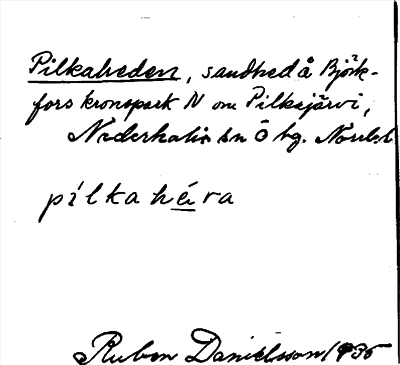 Pilkaheden, sandhed å Björk-
fors kronopark N om Pilkajärvi,
Nederkalix sn Ö hg. Norrb.
pílkahéra
Ruben Danielsson 1935